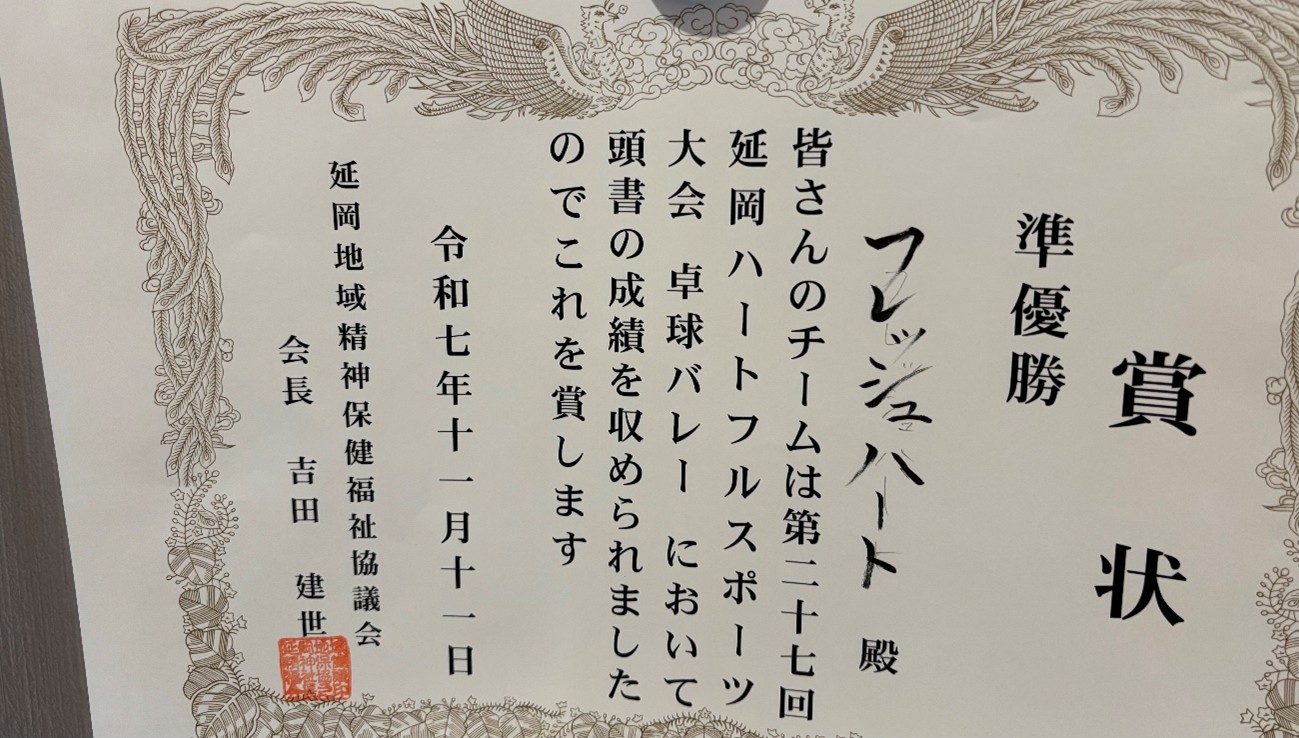 賞状
準優勝
フレッシュハート 殿
皆さんのチームは第二十七回
延岡ハートフルスポーツ
大会 卓球バレー において
頭書の成績を収められました
のでこれを賞します
令和七年十一月十一日
延岡地域精神保健福祉協議会
会長 吉田 建世